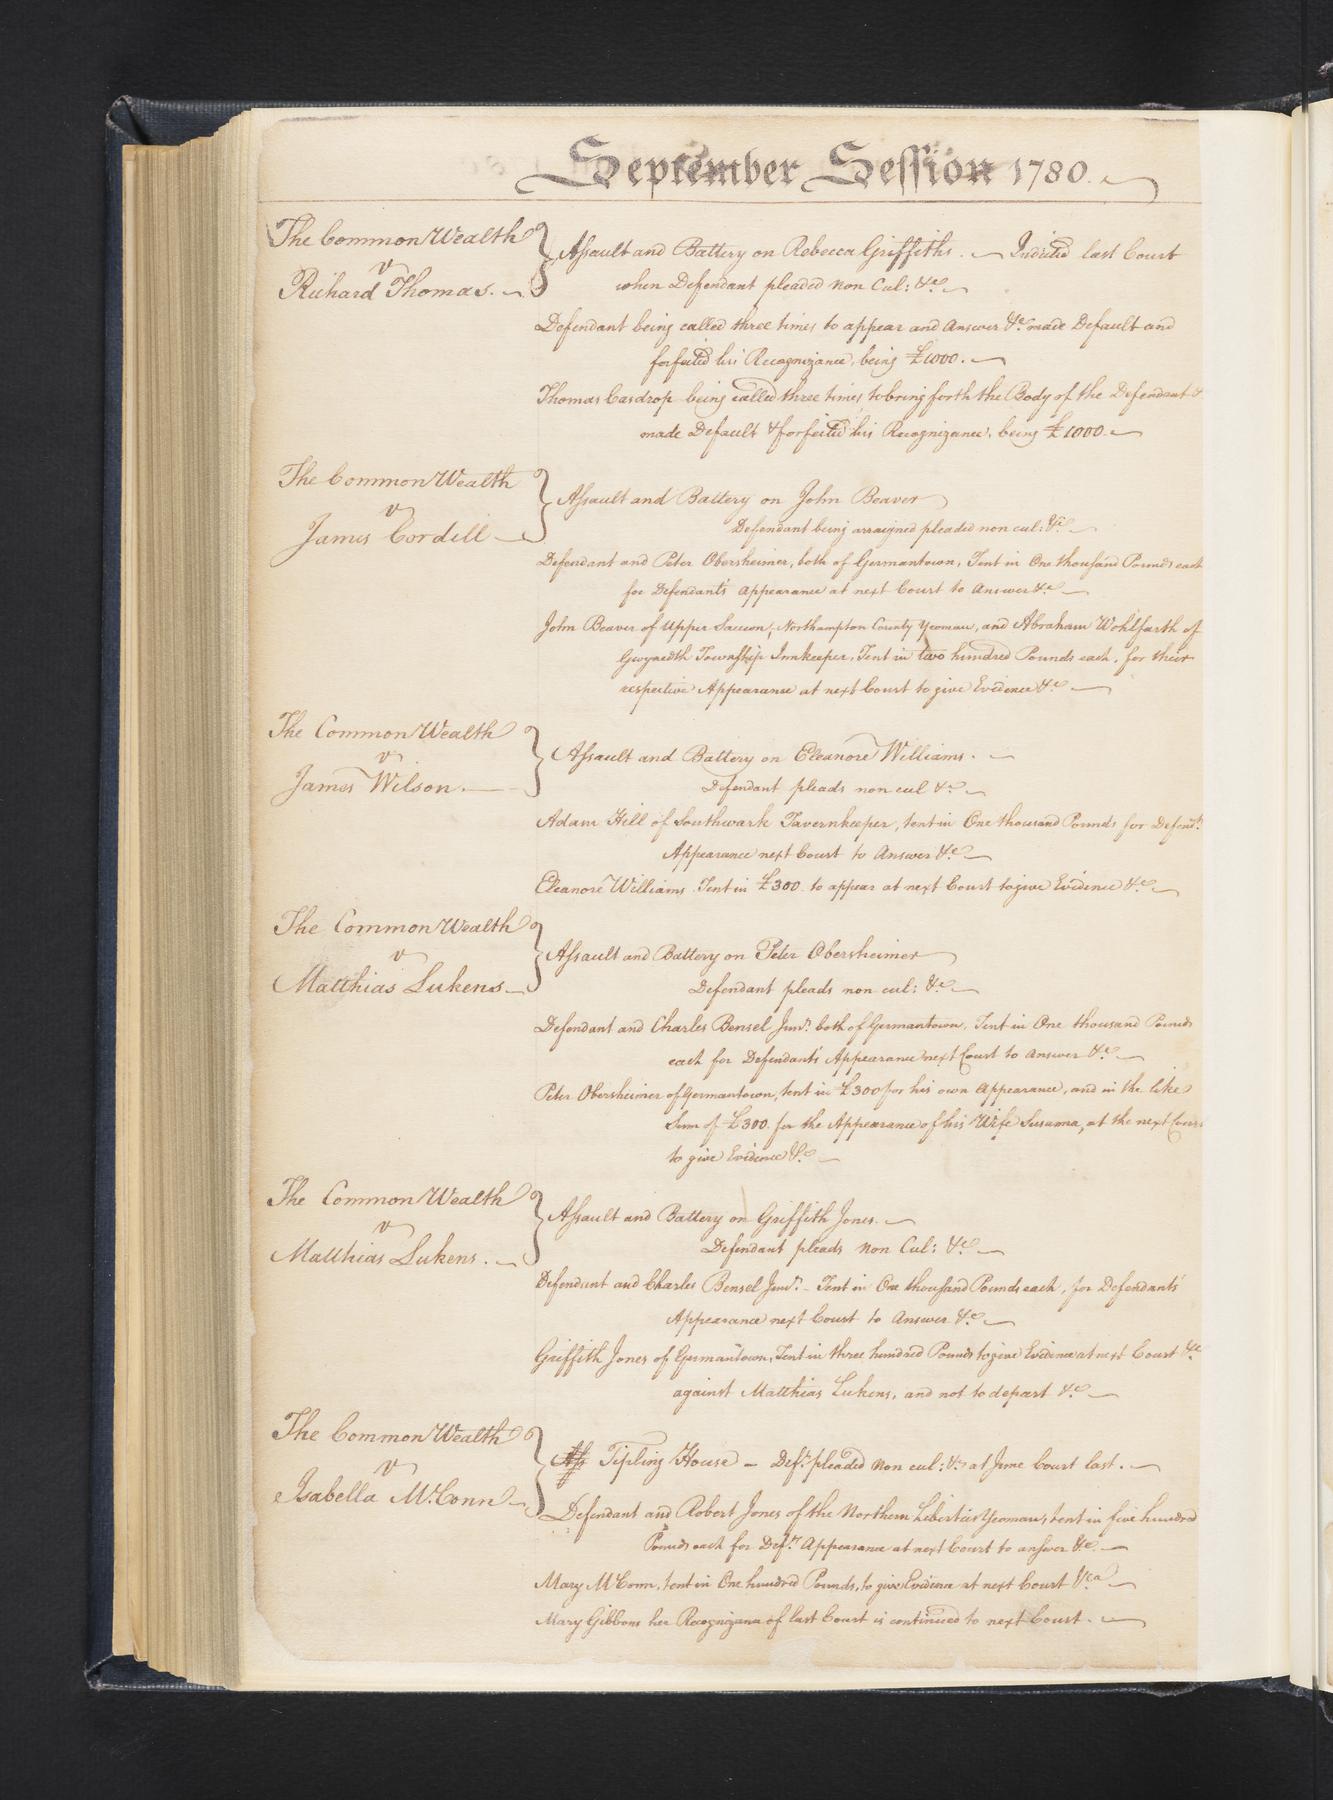 September Session 1780.
The Common Wealth
v
Richard Thomas.
Assault and Battery on Rebecca Griffiths. — Indicted last Court
when Defendant pleaded non Cul: &c
Defendant being called three times to appear and Answer &c made Default and
forfeited his Recognizance, being £1000.
Thomas Casdrop being called three times to bring forth the Body of the Defendant &
made Default & forfeited his Recognizance, being £1000.
The Common Wealth
v
James Cordill
Assault and Battery on John Beaver
Defendant being arraigned pleaded non cul: &c
Defendant and Peter Obersheimer, both of Germantown, Tent in One thousand Pounds each
for Defendants appearance at next Court to Answer &c
John Beaver of Upper Saucon, Northampton County Yeoman, and Abraham Wohlfarth of
Gwynedth Township Innkeeper, Tent in two hundred Pounds each, for their
respective Appearance at next Court to give Evidence &c
The Common Wealth
v
James Wilson.
Assault and Battery on Eleanore Williams.
Defendant pleads non cul &c
Adam Hill of Southwark Tavernkeeper, tent in One thousand Pounds for Defendts
Appearance next Court to Answer &c
Eleanore Williams Tent in £300 to appear at next Court to give Evidence &c
The Common Wealth
v
Matthias Lukens
Assault and Battery on Peter Obersheimer
Defendant pleads non cul: &c
Defendant and Charles Bensel Junr. both of Germantown, Tent in One thousand Pounds
each for Defendants Appearance next Court to answer &c
Peter Obersheimer of Germantown, tent in £300 for his own Appearance, and in the like
Sum of £300 for the Appearance of his Wife Susanna, at the next Court
to give Evidence &c
The Common Wealth
v
Matthias Lukens.
Assault and Battery on Griffith Jones.
Defendant pleads non Cul: &c
Defendant and Charles Bensel Junr. – Tent in One thousand Pounds each, for Defendants
Appearance next Court to Answer &c
Griffith Jones of Germantown, Tent in three hundred Pounds to give Evidence at next Court &c
against Matthias Lukens, and not to depart &c
The Common Wealth
v
Isabella McConn
Ass Tipling House – Deft. pleaded non cul: &c at June Court last.
Defendant and Robert Jones of the Northern Liberties Yeoman, tent in five hundred
Pounds each for Defts Appearance at next Court to answer &c.
Mary McConn, tent in One hundred Pounds, to give Evidence at next Court &ca
Mary Gibbons her Recognizance of last Court is continued to next Court.